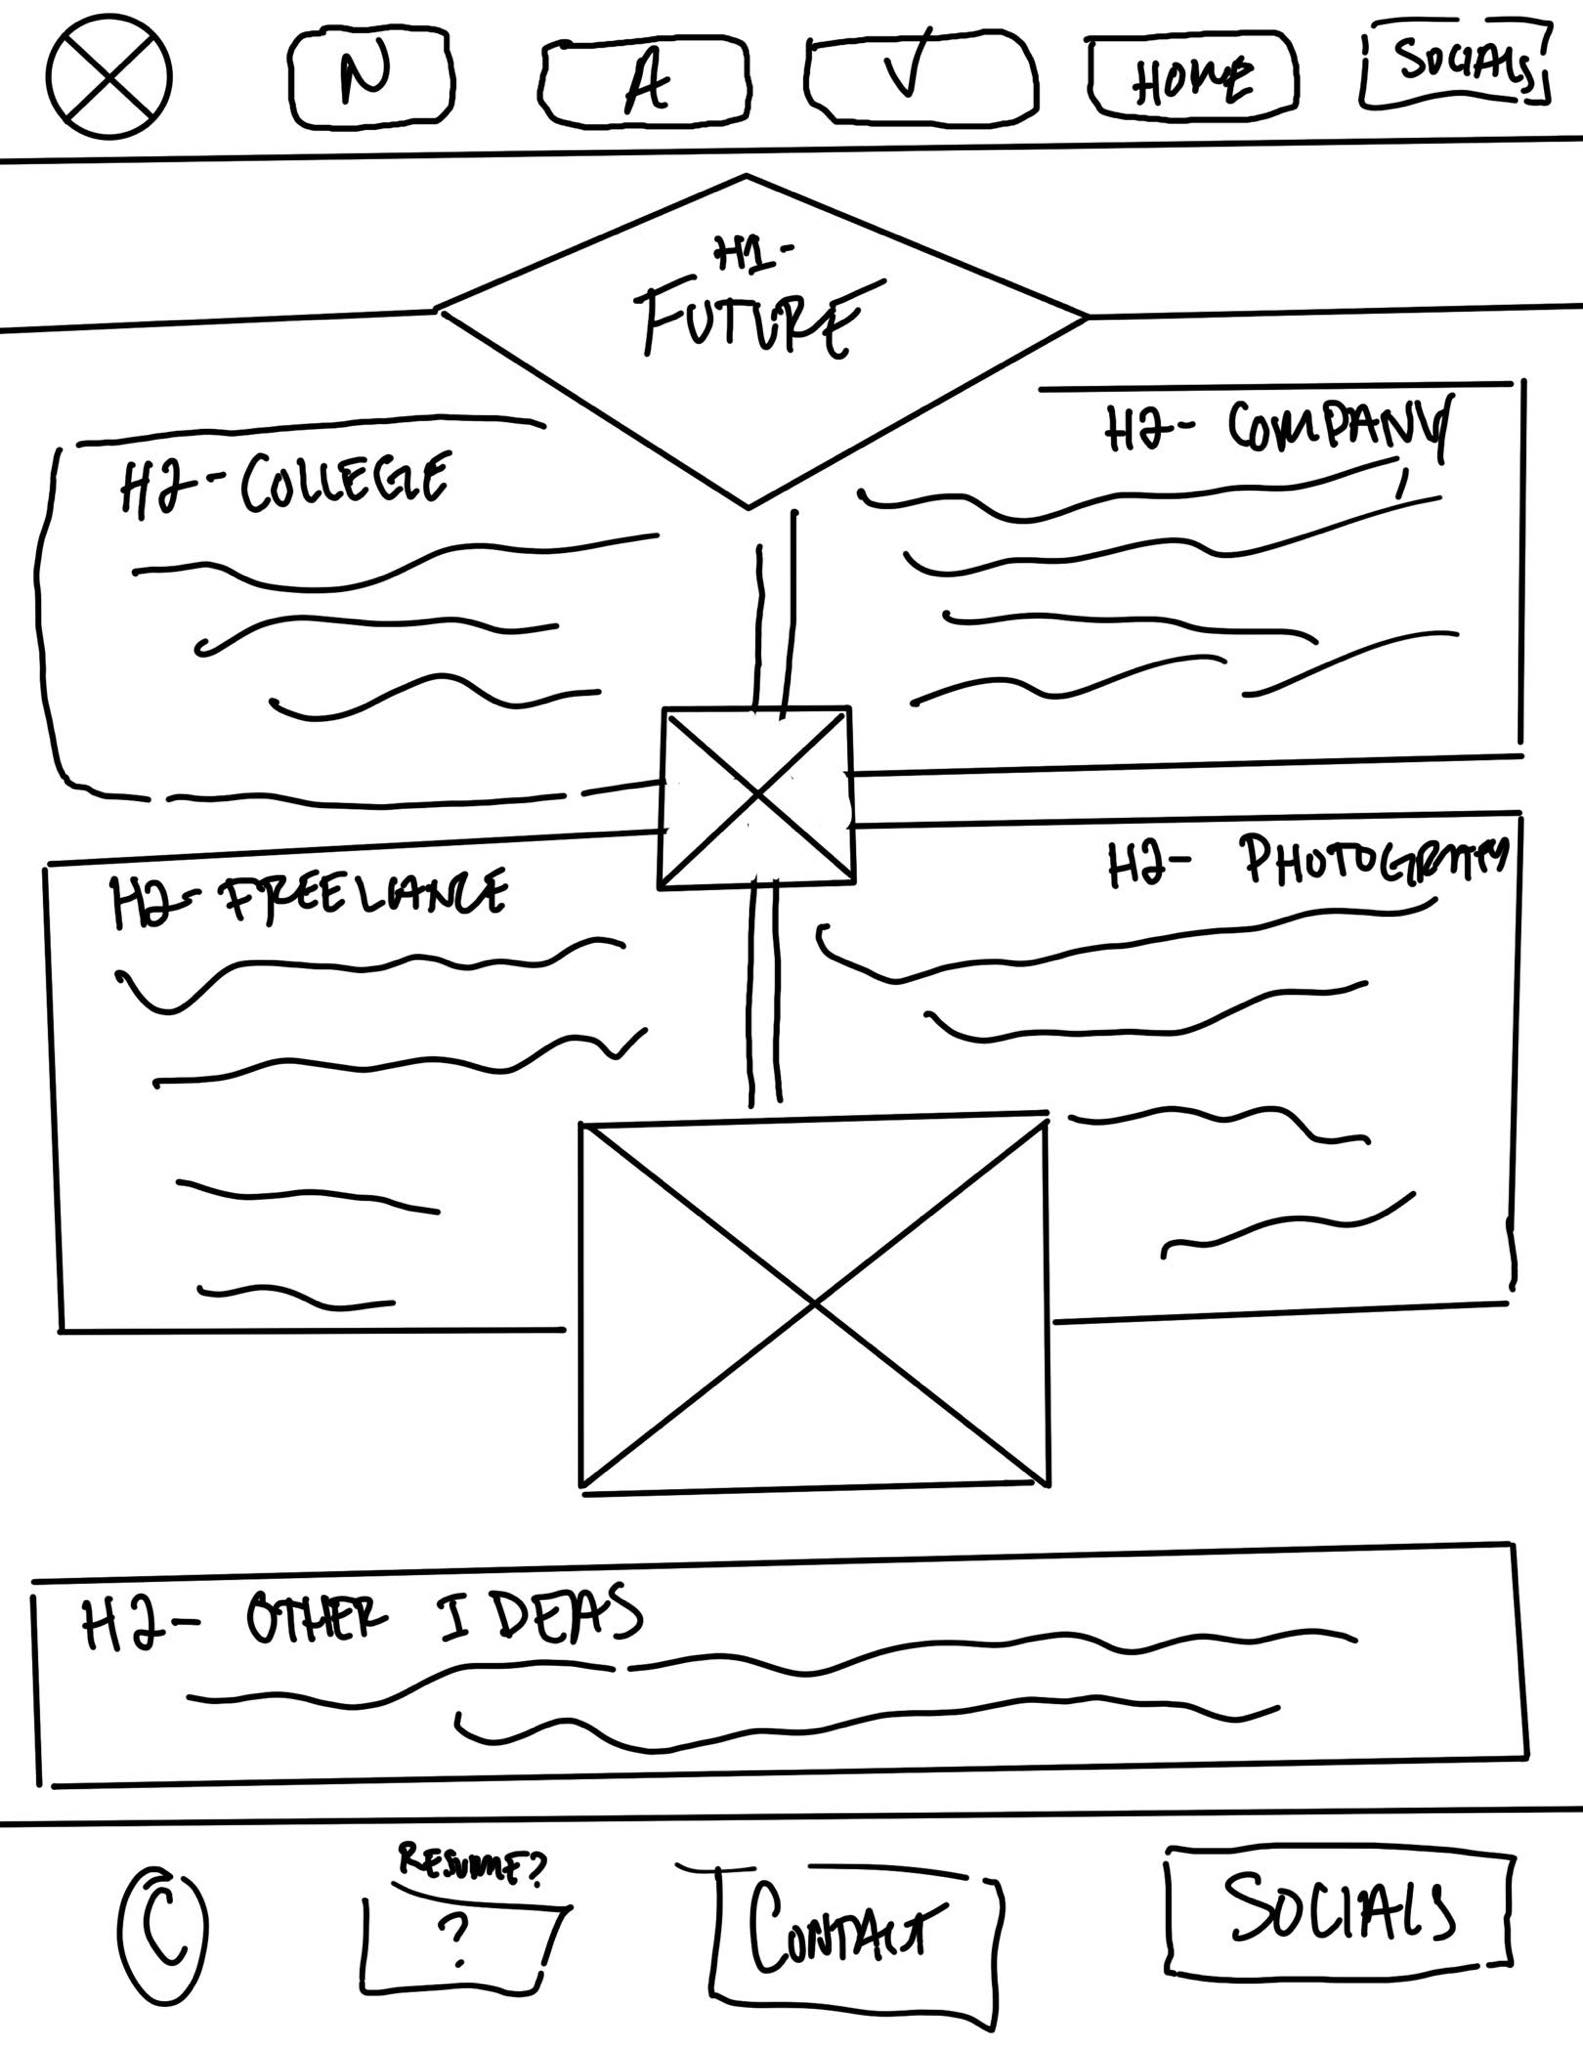 N A V HOME SOCIALS
H1-
FUTURE
H2- COMPANY
H2- COLLEGE
H2- FREELANCE
H2- PHOTOGRAPHY
H2- OTHER IDEAS
C
RESUME?
?
CONTACT
SOCIALS